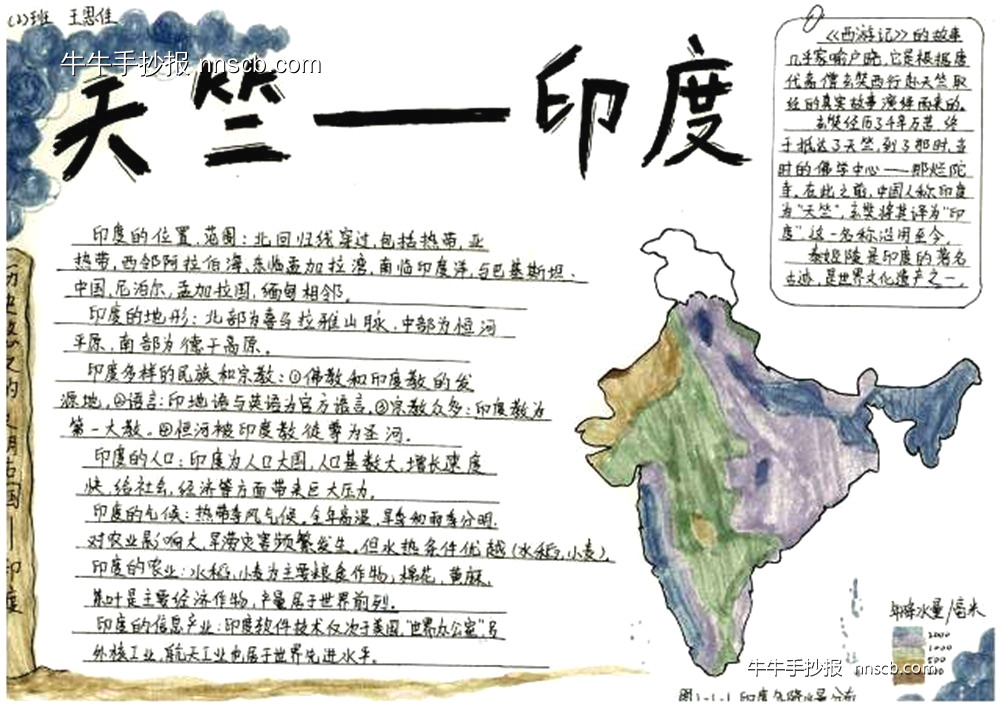 (2)班 王思佳
牛牛手抄报 nnscb.com
天竺——印度
《西游记》的故事
几乎家喻户晓,它是根据唐
代高僧玄奘西行赴天竺取
经的真实故事演绎而来的。
玄奘经历了千辛万苦,终
于抵达了天竺,到了那时,当
时的佛学中心——那烂陀
寺。在此之前,中国人称印度
为“天竺”,玄奘将其译为“印
度”这一名称沿用至今。
泰姬陵是印度的著名
古迹,是世界文化遗产之一。
印度的位置,范围:北回归线穿过,包括热带,亚
热带,西邻阿拉伯海,东临孟加拉湾,南临印度洋,与巴基斯坦、
中国,尼泊尔,孟加拉国,缅甸相邻。
印度的地形:北部为喜马拉雅山脉,中部为恒河
平原,南部为德干高原。
印度多样的民族和宗教:①佛教和印度教的发
源地,②语言:印地语与英语为官方语言,③宗教众多:印度教为
第一大教。④恒河被印度教徒尊为圣河。
印度的人口:印度为人口大国,人口基数大,增长速度
快,给社会,经济等方面带来巨大压力。
印度的气候:热带季风气候。全年高温,旱季和雨季分明.
对农业影响大,旱涝灾害频繁发生,但水热条件优越(水稻,小麦).
印度的农业:水稻,小麦为主要粮食作物,棉花,黄麻,
茶叶是主要经济作物,产量居于世界前列.
印度的信息产业:印度软件技术仅次于美国,“世界办公室”另
外核工业,航天工业也属于世界先进水平.
文明古国——印度
年降水量/毫米
2000
1000
500
牛牛手抄报 nnscb.com
图1-1-1 印度年降水量分布